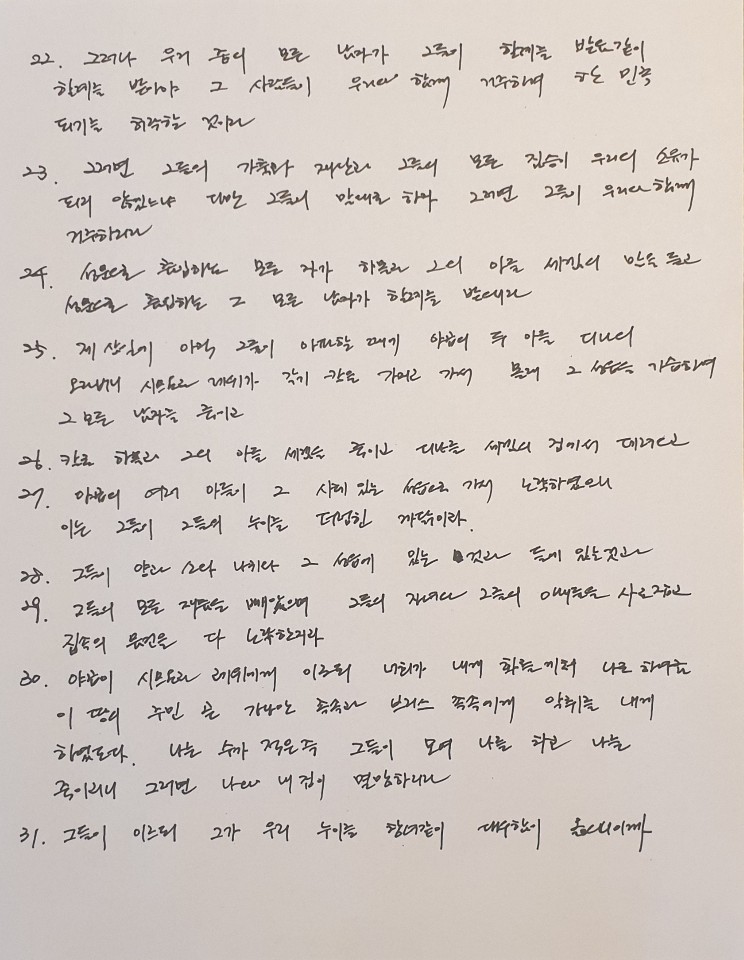 22. 그러나 우리 중의 모든 남자가 그들이 할례를 받음같이
할례를 받아야 그 사람들이 우리와 함께 거주하며 한 민족
되기를 허락할 것이라
23. 그러면 그들의 가축과 재산과 그들의 모든 짐승이 우리의 소유가
되지 않겠느냐 다만 그들의 말대로 하자 그러면 그들이 우리와 함께
거주하리라
24. 성문으로 출입하는 모든 자가 하몰과 그의 아들 세겜의 말을 듣고
성문으로 출입하는 그 모든 남자가 할례를 받으니라
25. 제 삼일에 아직 그들이 아파할 때에 야곱의 두 아들 디나의
오라버니 시므온과 레위가 각기 칼을 가지고 가서 몰래 그 성읍을 기습하여
그 모든 남자를 죽이고
26. 칼로 하몰과 그의 아들 세겜을 죽이고 디나를 세겜의 집에서 데려오고
27. 야곱의 여러 아들이 그 시체 있는 성읍으로 가서 노략하였으니
이는 그들이 그들의 누이를 더럽힌 까닭이라.
28. 그들이 양과 소와 나귀와 그 성읍에 있는 것과 들에 있는 것과
29. 그들의 모든 재물을 빼앗으며 그들의 자녀와 그들의 아내들을 사로잡고
집속의 물건을 다 노략한지라
30. 야곱이 시므온과 레위에게 이르되 너희가 내게 화를 끼쳐 나로 하여금
이 땅의 주민 곧 가나안 족속과 브리스 족속에게 악취를 내게
하였도다. 나는 수가 적은즉 그들이 모여 나를 치고 나를
죽이리니 그러면 나와 내 집이 멸망하리라
31. 그들이 이르되 그가 우리 누이를 창녀같이 대우함이 옳으니이까